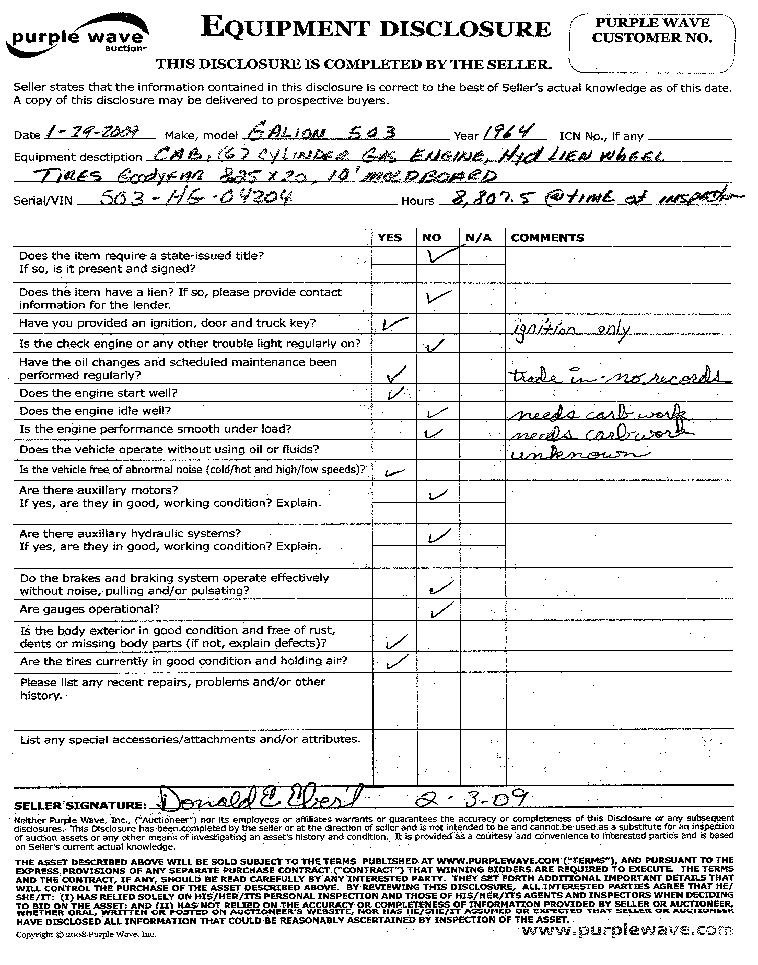 purple wave
auction
EQUIPMENT DISCLOSURE
PURPLE WAVE
CUSTOMER NO.
THIS DISCLOSURE IS COMPLETED BY THE SELLER.
Seller states that the information contained in this disclosure is correct to the best of Seller's actual knowledge as of this date.
A copy of this disclosure may be delivered to prospective buyers.
Date 1-29-2009 Make, model GALION 503 Year 1964 ICN No., if any
Equipment description CAB, (6) CYLINDER GAS ENGINE, Hyd LIEN WHEEL
TIRES GOODYEAR 825 X 20, 10' MOLDBOARD
Serial/VIN 503-HG-04204 Hours 8,807.5 @ TIME of INSPECTION
YES NO N/A COMMENTS
Does the item require a state-issued title? ✓
If so, is it present and signed?
Does the item have a lien? If so, please provide contact
information for the lender. ✓
Have you provided an ignition, door and truck key? ✓ ignition only
Is the check engine or any other trouble light regularly on? ✓
Have the oil changes and scheduled maintenance been
performed regularly? ✓ trade in-no records
Does the engine start well? ✓
Does the engine idle well? ✓ needs carb work
Is the engine performance smooth under load? ✓ needs carb work
Does the vehicle operate without using oil or fluids? unknown
Is the vehicle free of abnormal noise (cold/hot and high/low speeds)? ✓
Are there auxiliary motors? ✓
If yes, are they in good, working condition? Explain.
Are there auxiliary hydraulic systems? ✓
If yes, are they in good, working condition? Explain.
Do the brakes and braking system operate effectively
without noise, pulling and/or pulsating? ✓
Are gauges operational? ✓
Is the body exterior in good condition and free of rust,
dents or missing body parts (if not, explain defects)? ✓
Are the tires currently in good condition and holding air? ✓
Please list any recent repairs, problems and/or other
history.
List any special accessories/attachments and/or attributes.
SELLER SIGNATURE: Donald E Ebert 2-3-09
Neither Purple Wave, Inc., ("Auctioneer") nor its employees or affiliates warrants or guarantees the accuracy or completeness of this Disclosure or any subsequent
disclosures. This Disclosure has been completed by the seller or at the direction of seller and is not intended to be and cannot be used as a substitute for an inspection
of auction assets or any other means of investigating an asset's history and condition. It is provided as a courtesy and convenience to interested parties and is based
on Seller's current actual knowledge.
THE ASSET DESCRIBED ABOVE WILL BE SOLD SUBJECT TO THE TERMS PUBLISHED AT WWW.PURPLEWAVE.COM ("TERMS"), AND PURSUANT TO THE
EXPRESS PROVISIONS OF ANY SEPARATE PURCHASE CONTRACT ("CONTRACT") THAT WINNING BIDDERS ARE REQUIRED TO EXECUTE. THE TERMS
AND THE CONTRACT, IF ANY, SHOULD BE READ CAREFULLY BY ANY INTERESTED PARTY. THEY SET FORTH ADDITIONAL IMPORTANT DETAILS THAT
WILL CONTROL THE PURCHASE OF THE ASSET DESCRIBED ABOVE. BY REVIEWING THIS DISCLOSURE, ALL INTERESTED PARTIES AGREE THAT HE/
SHE/IT: (I) HAS RELIED SOLELY ON HIS/HER/ITS PERSONAL INSPECTION AND THOSE OF HIS/HER/ITS AGENTS AND INSPECTORS WHEN DECIDING
TO BID ON THE ASSET; AND (II) HAS NOT RELIED ON THE ACCURACY OR COMPLETENESS OF INFORMATION PROVIDED BY SELLER OR AUCTIONEER,
WHETHER ORAL, WRITTEN OR POSTED ON AUCTIONEER'S WEBSITE, NOR HAS HE/SHE/IT ASSUMED OR EXPECTED THAT SELLER OR AUCTIONEER
HAVE DISCLOSED ALL INFORMATION THAT COULD BE REASONABLY ASCERTAINED BY INSPECTION OF THE ASSET.
Copyright © 2008 Purple Wave, Inc.
www.purplewave.com